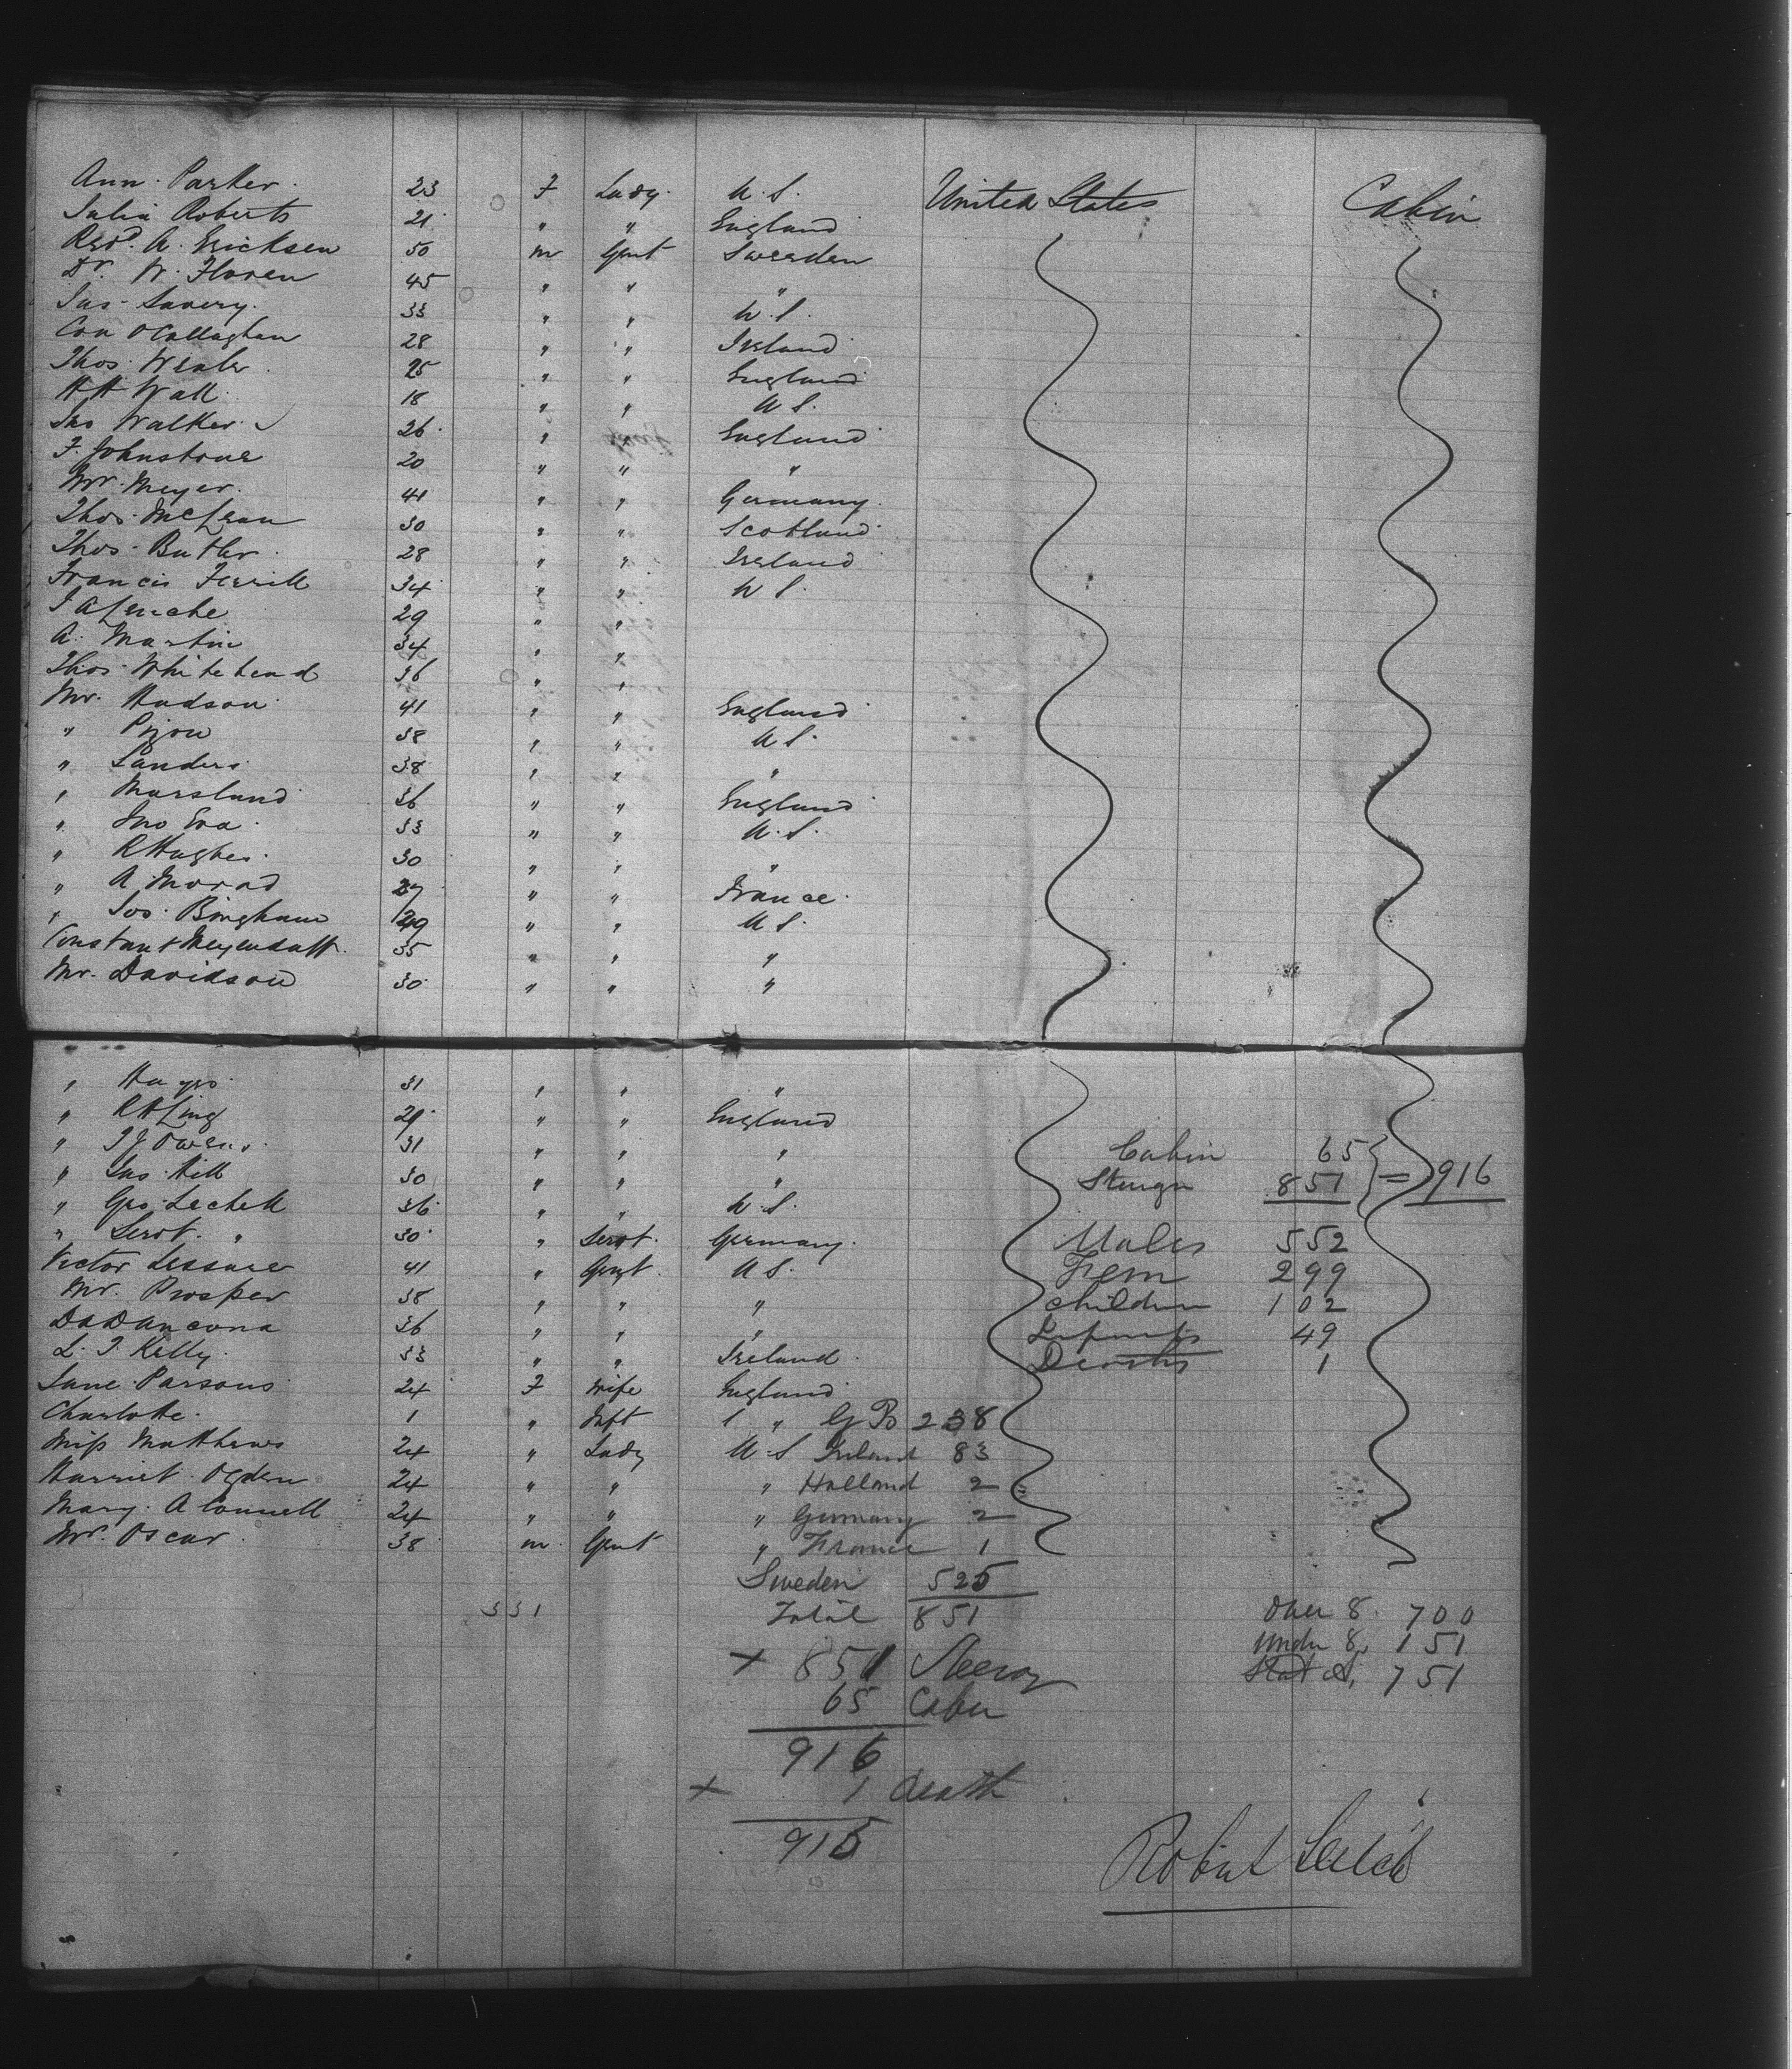 Ann Parker 23 F Lady U.S. United States Cabin
Julia Roberts 21 " " England
Revd. A. Ericksen 50 m Gent Sweeden
Dr. W. Floren 45 " " "
Jas Savery 33 " " U.S.
Con O'Callaghan 28 " " Ireland
Thos 25 " " England
H H Wall 18 " " U S.
Jno Walker 26 " " England
F. Johnstone 20 " " "
Mr. Meyer 41 " " Germany
Thos McLean 30 " " Scotland
Thos Butler 28 " " Ireland
Francis Ferrill 34 " " U S.
29 " "
A. Martin 34 " "
Thos Whitehead 36 " "
Mr. Hudson 41 " " England
" 38 " " U S.
" Sanders 38 " " "
" Marsland 36 " " England
" Jno Eva 33 " " U.S.
" R Hughes 30 " " "
" A Morad 27 " " France
" Jos. Bingham 29 " " U S.
Constant 35 " " "
Mr. Davidson 30 " " "
" Hayes 31 " " "
" R H Ling 29 " " England
" T J Owens 31 " " " Cabin 65
" Jas Hill 30 " " " Steerage 851 = 916
" Geo Lechell 36 " " U.S.
" Servt. " 30 " Servt. Germany Males 552
Victor 41 " Gent U S. Fem 299
Mr. Prosper 38 " " " Children 102
36 " " " Infants 49
L. T. Kelly 33 " " Ireland Deaths 1
Jane Parsons 24 F Wife England
Charlotte 1 " Inft " G B 238
Miss Matthews 24 " Lady U.S Ireland 83
Harriet Ogden 24 " " " Holland 2
Mary A Connell 24 " " " Germany 2
Mr. Oscar 38 m Gent " France 1
Sweden 525
331 Total 851 Over 8. 700
Under 8, 151
+ 851 751
65 Cabin
916
+ 1 death
915
Robert Leitch